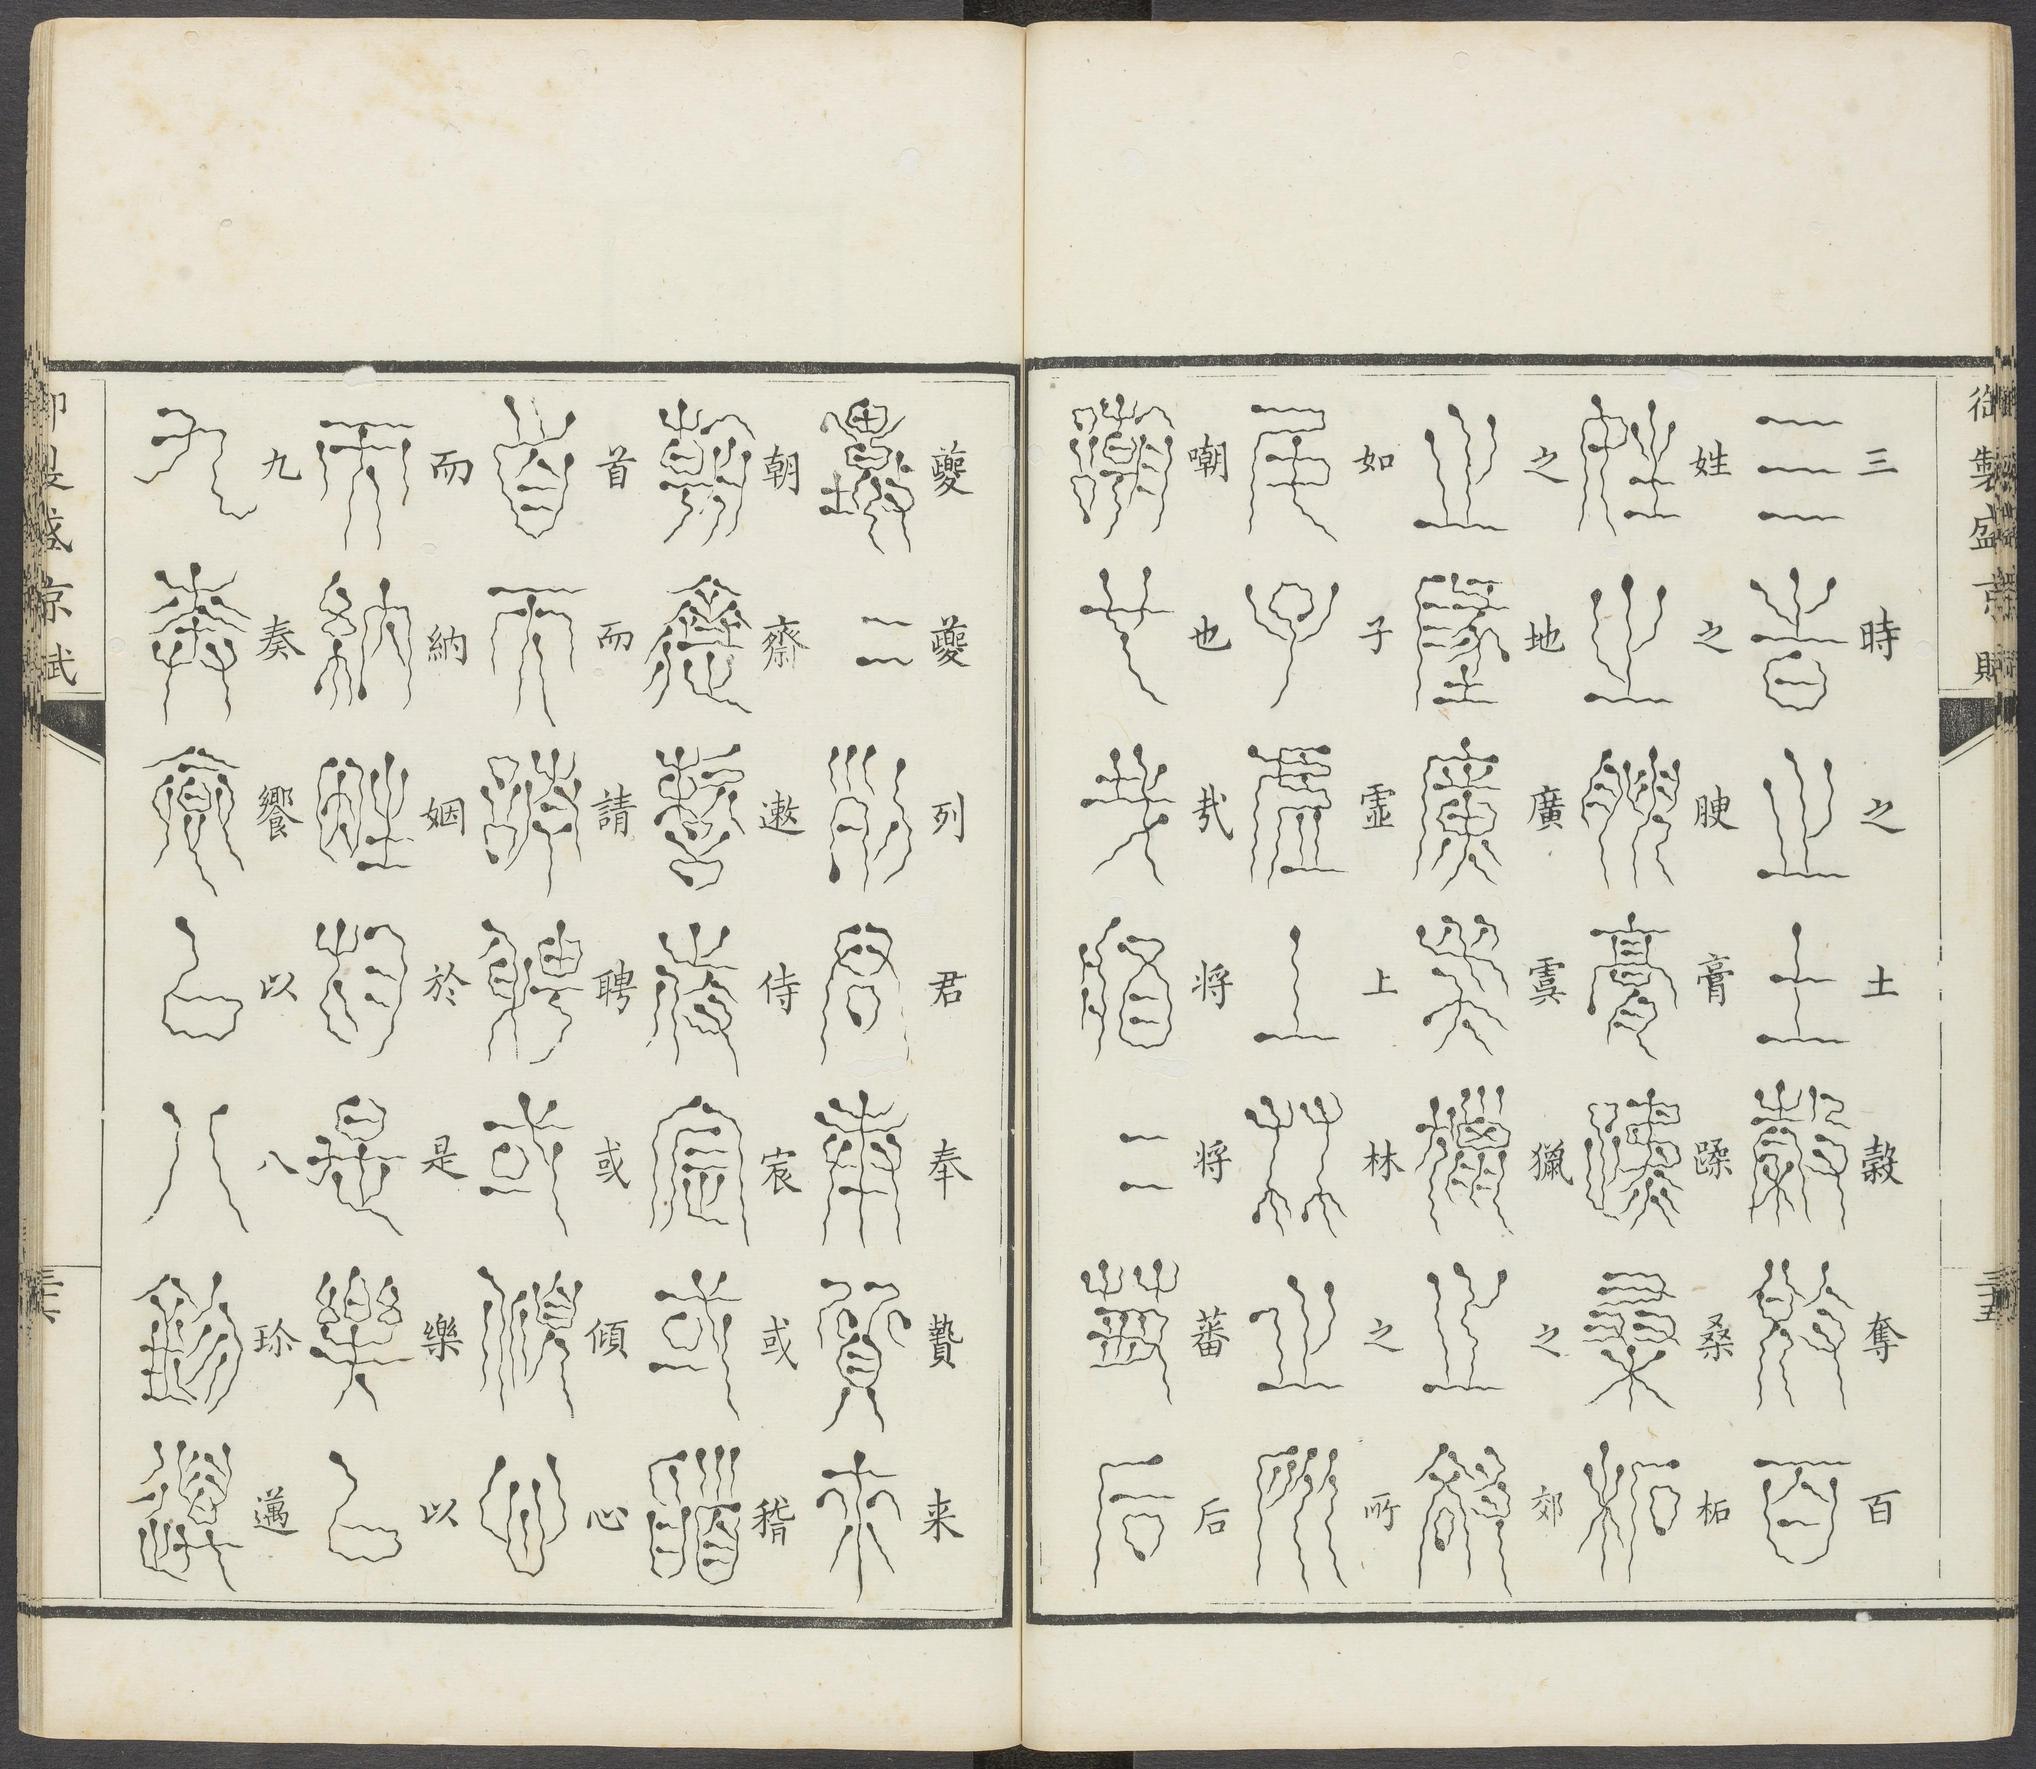 御製盛京賦
三時之土穀奪百
姓之腴膏蹂桑柘
之地廣虞獵之郊
如子虛上林之所
嘲也哉將將蕃后
三十五
夔夔列君奉贄来
朝齋遬侍宸或稽
首而請聘或傾心
而納姻於是樂以
九奏饗以八珍邁
御製盛京賦
三十六